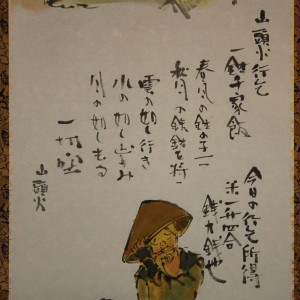 山頭火行乞
一鉢千家飯
春風の鉢の子一つ
秋月の鉄鉢を持ち
雲の如く行き
水の如く歩み
風の如く去る
一切空
山頭火
今日の行乞所得
米一升四合
銭九銭也